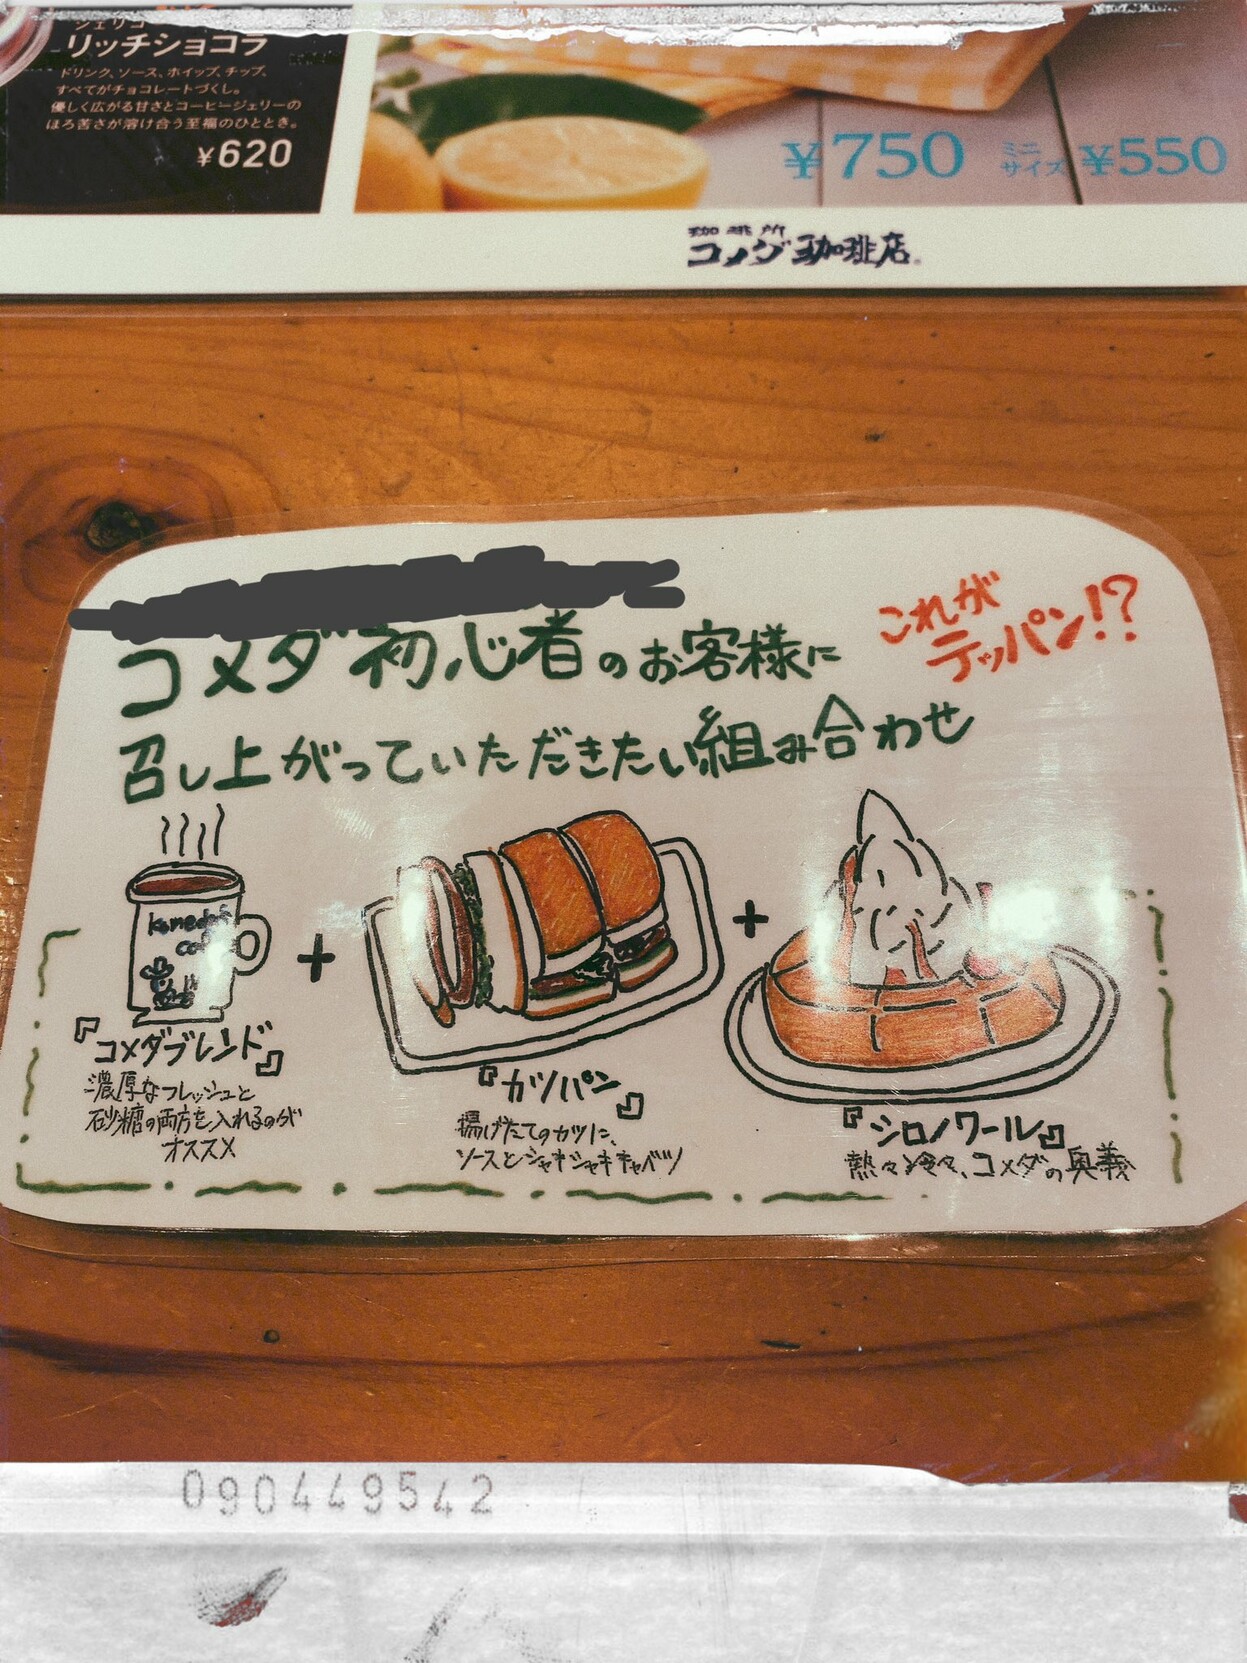 ジェリコ
リッチショコラ
ドリンク、ソース、ホイップ、チップ、
すべてがチョコレートづくし。
優しく広がる甘さとコーヒージェリーの
ほろ苦さが溶け合う至福のひととき。
¥620
¥750 ミニサイズ ¥550
珈琲所
コメダ珈琲店
これが
テッパン!?
コメダ初心者のお客様に
召し上がっていただきたい組み合わせ
komeda's
cafe
+
+
『コメダブレンド』
濃厚なフレッシュと
砂糖の両方を入れるのが
オススメ
『カツパン』
揚げたてのカツに、
ソースとシャキシャキキャベツ
『シロノワール』
熱々冷々、コメダの奥義
090449542